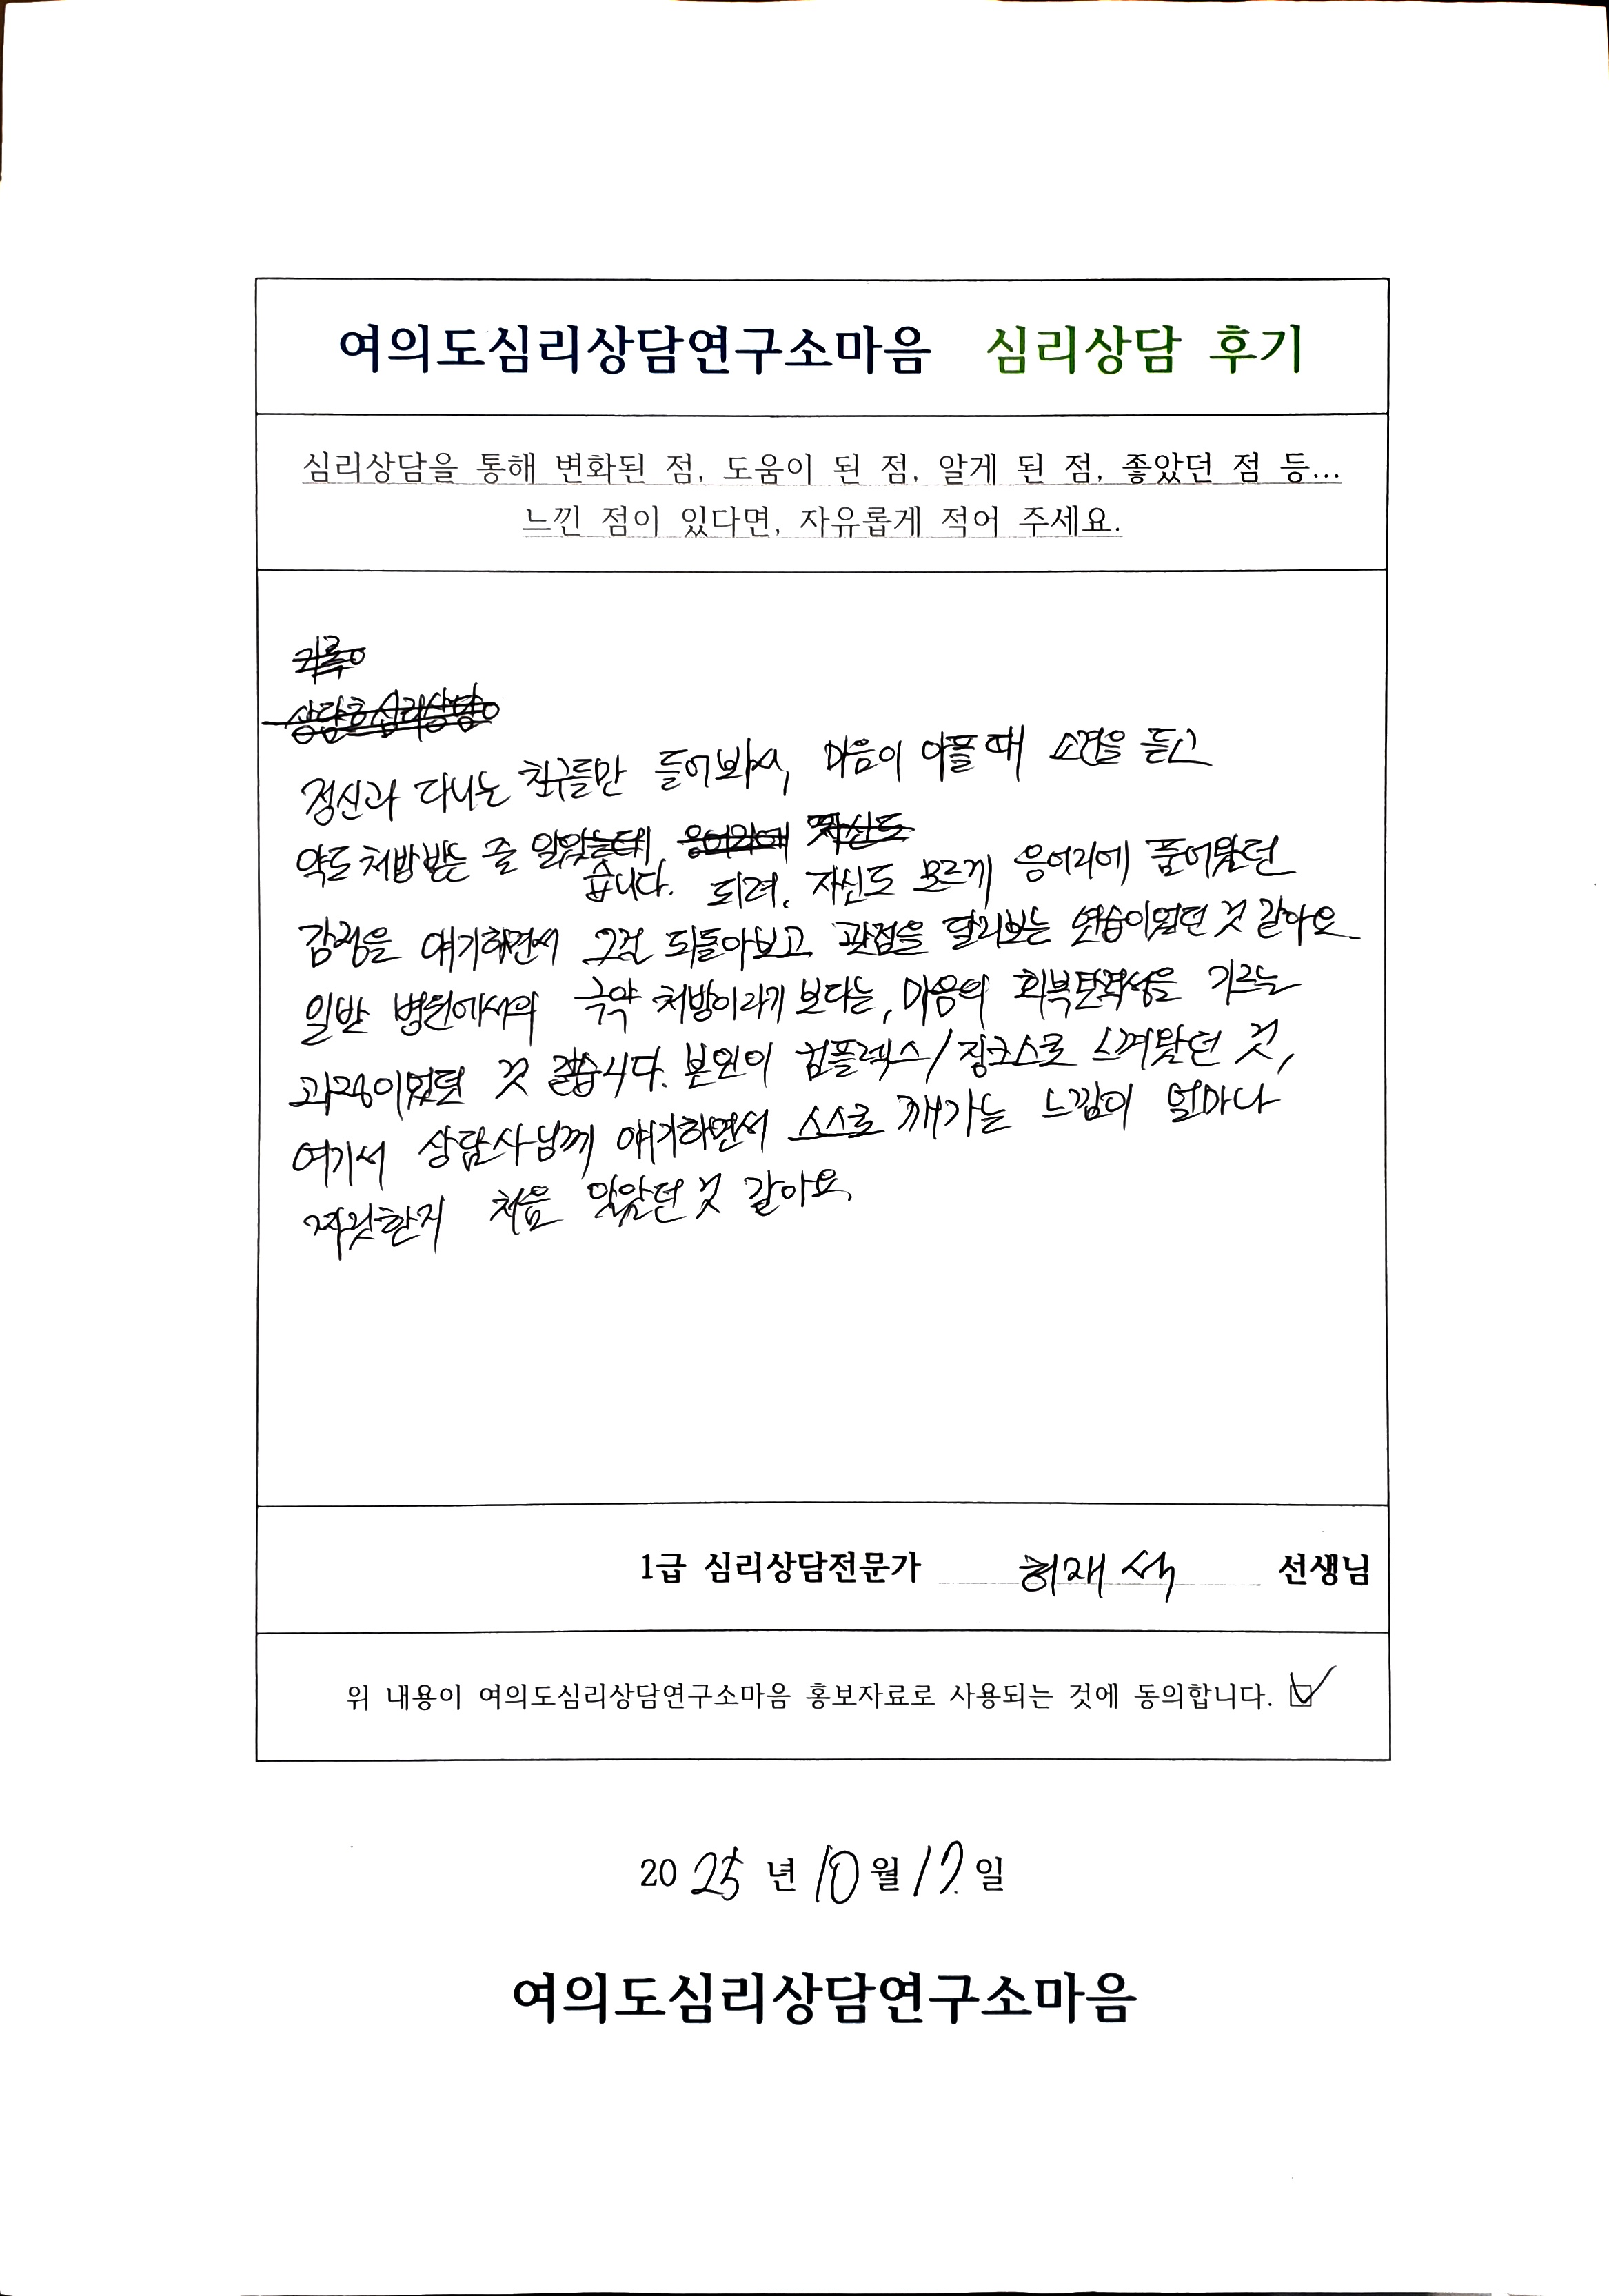 여의도심리상담연구소마음 심리상담 후기
심리상담을 통해 변화된 점, 도움이 된 점, 알게 된 점, 좋았던 점 등...
느낀 점이 있다면, 자유롭게 적어 주세요.
정신과 다니는 친구들만 들어봐서, 마음이 아플 때 소견을 듣고
약도 처방받는 줄 알았
습니다. 되려, 자신도 모르게 응어리에 품어왔던
감정을 얘기하면서 그걸 되돌아보고 관점을 달리보는 연습이었던 것 같아요
일반 병원에서의 극약 처방이라기 보다는, 마음의 회복탄력성을 기르는
과정이었던 것 같습니다. 본인이 컴플렉스/징크스로 느껴왔던 것,
여기서 상담사님께 얘기하면서 스스로 깨가는 느낌이 얼마나
짜릿한지 처음 알았던 것 같아요.
1급 심리상담전문가 허재석 선생님
위 내용이 여의도심리상담연구소마음 홍보자료로 사용되는 것에 동의합니다.
2025년 10월 17일
여의도심리상담연구소마음